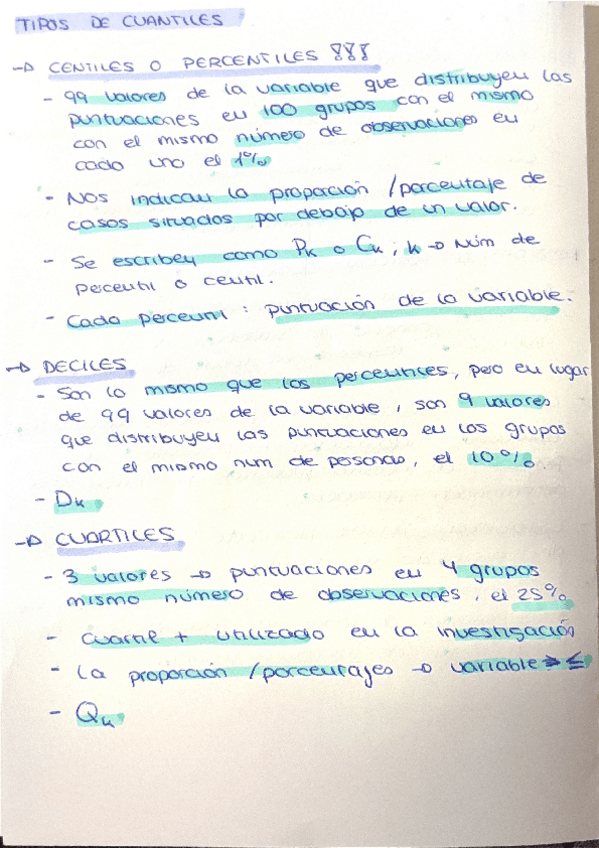 TIPOS DE CUANTILES
→ CENTILES O PERCENTILES
- 99 valores de la variable que distribuyen las
puntuaciones en 100 grupos con el mismo
con el mismo número de observaciones en
cada uno el 1%
- Nos indican la proporción / porcentaje de
casos situados por debajo de un valor.
- Se escriben como Pk o Ck ; k → Núm de
percentil o centil.
- Cada percentil : puntuación de la variable.
→ DECILES
- Son lo mismo que los percentiles, pero en lugar
de 99 valores de la variable, son 9 valores
que distribuyen las puntuaciones en los grupos
con el mismo num de personas, el 10%
- Dk
→ CUARTILES
- 3 valores → puntuaciones en 4 grupos
mismo número de observaciones, el 25%
- Cuartil + utilizado en la investigación
- La proporción / porcentajes → variable ≥ ≤
- Qk